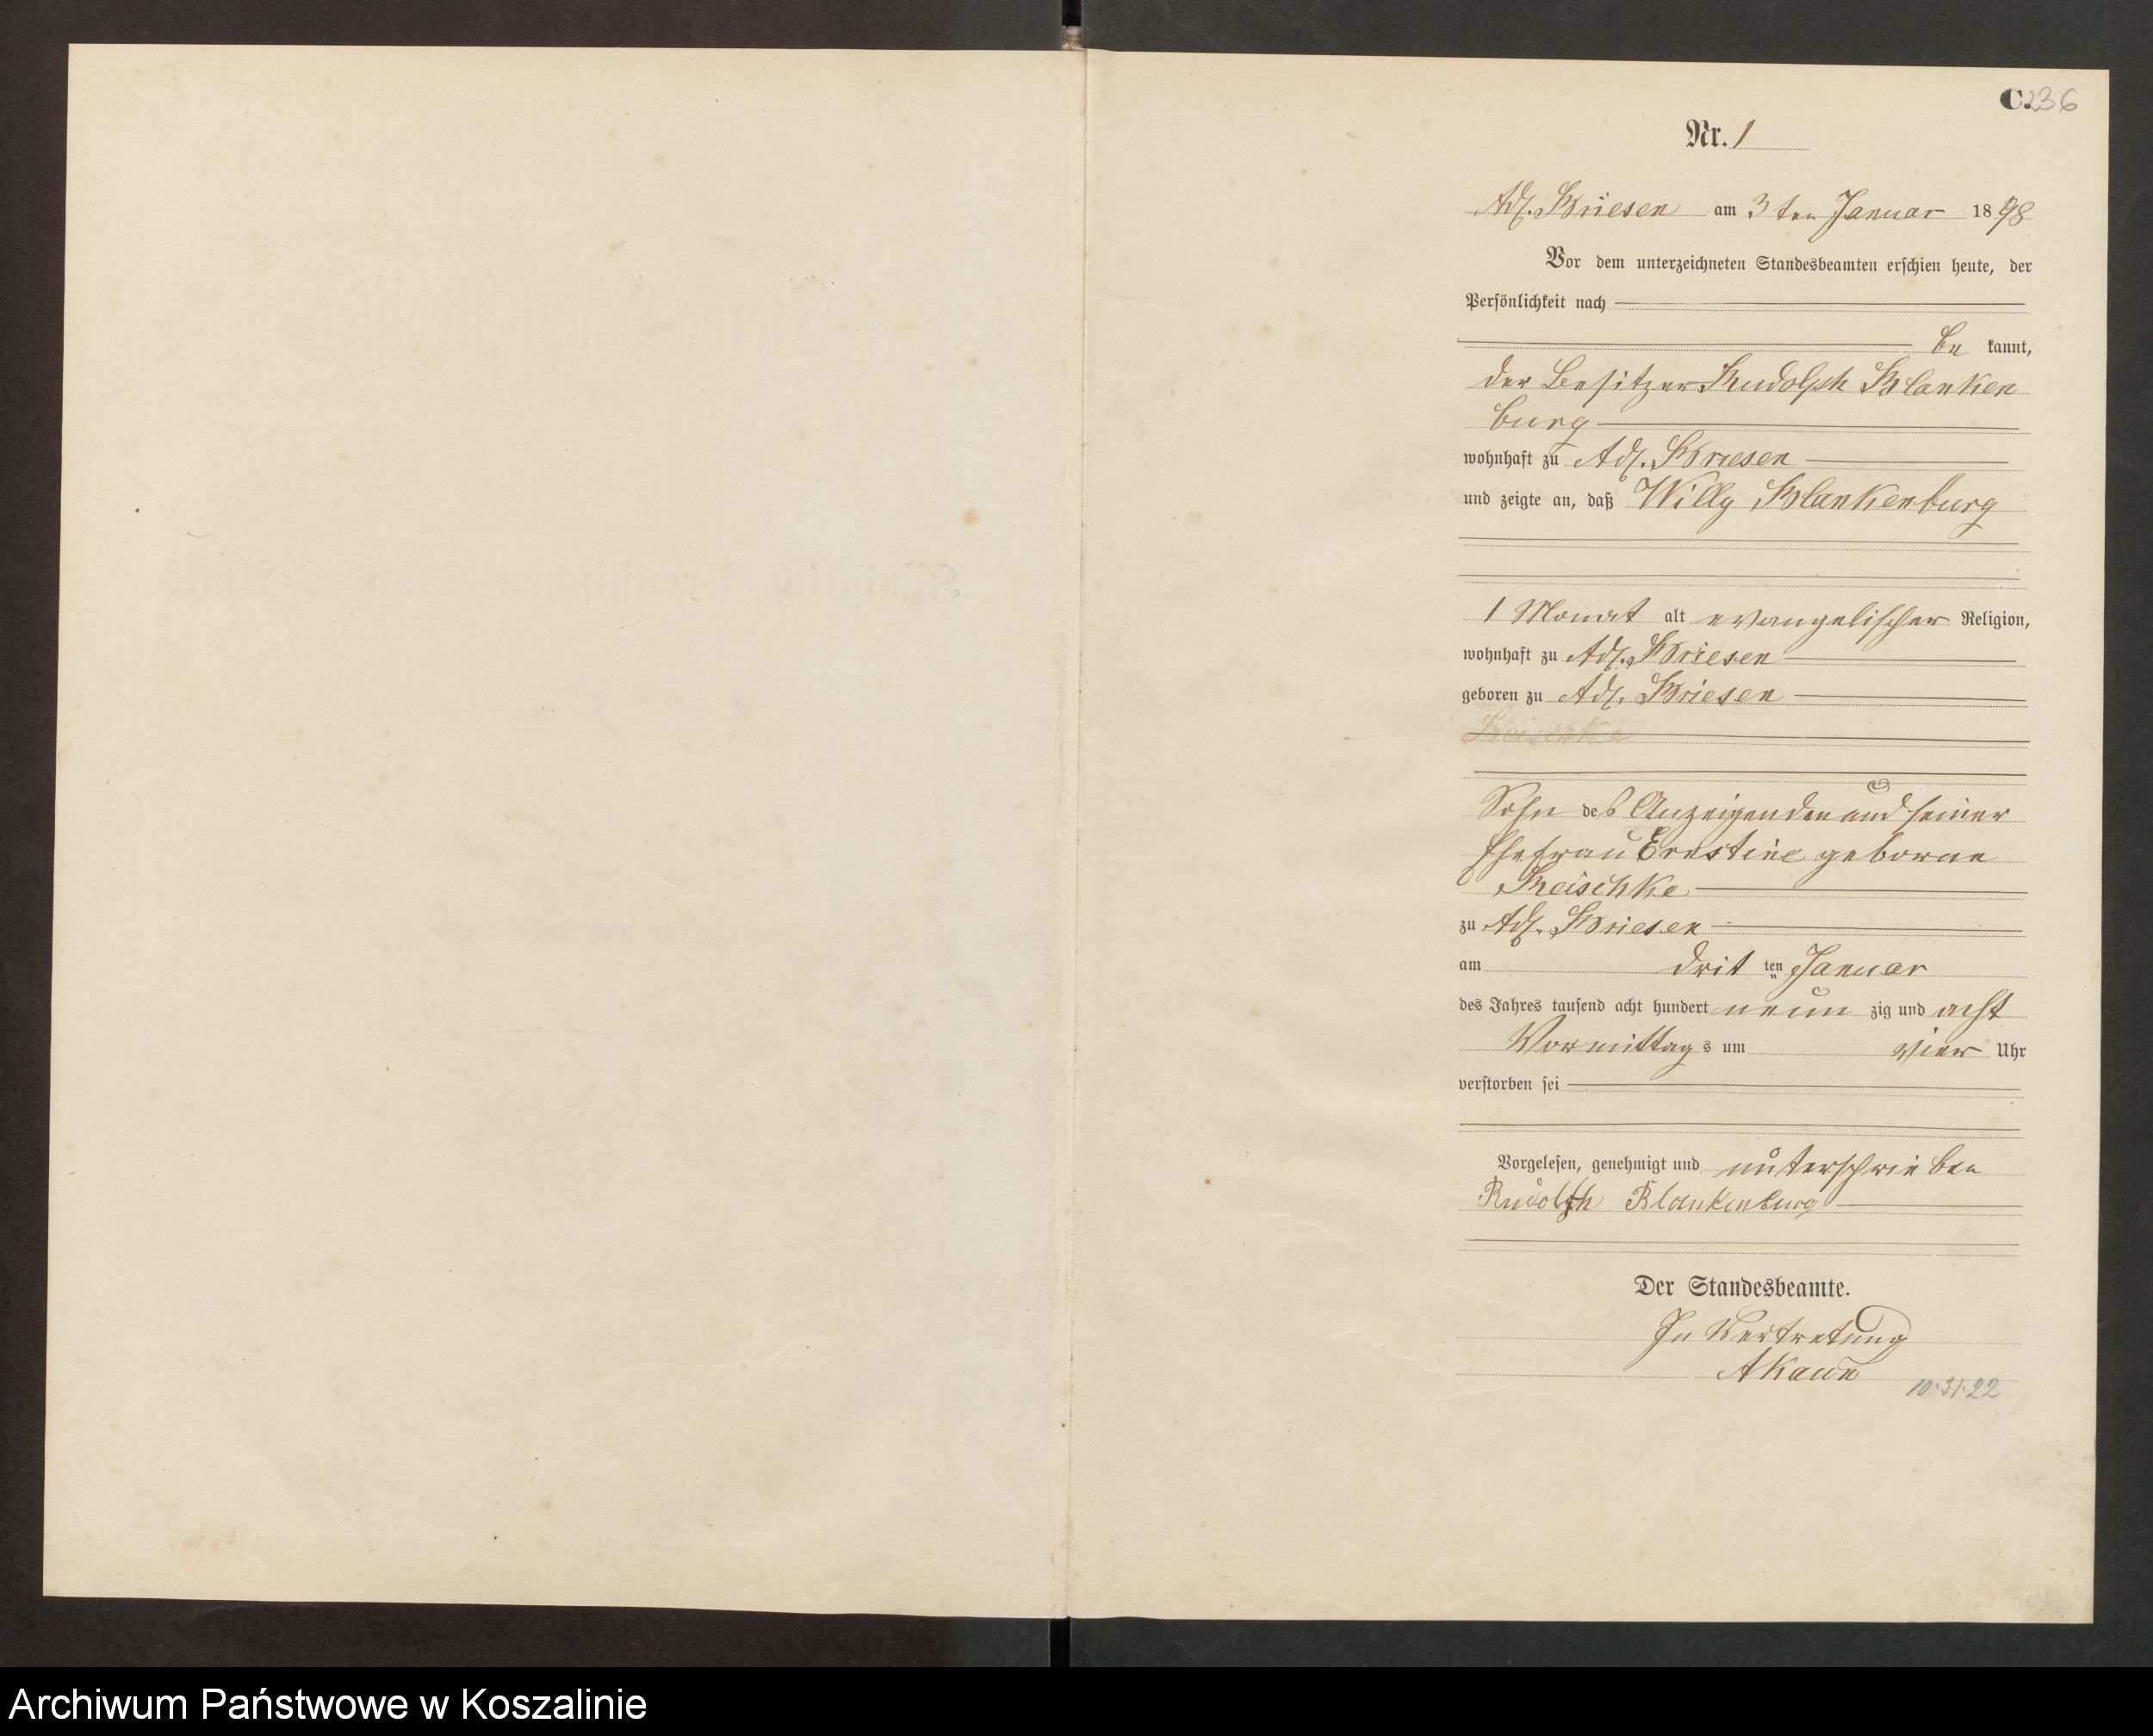 C. 236
Nr. 1
Adl. Briesen am 3ten Januar 1898
Vor dem unterzeichneten Standesbeamten erschien heute, der
Persönlichkeit nach
be kannt,
der Besitzer Rudolph Blanken
burg
wohnhaft zu Adl. Briesen
und zeigte an, daß Willy Blankenburg
1 Monat alt evangelischer Religion,
wohnhaft zu Adl. Briesen
geboren zu Adl. Briesen
Sohn des Anzeigenden und seiner
Ehefrau Ernestine geborne
Reischke
zu Adl. Briesen
am drit ten Januar
des Jahres tausend acht hundert neun zig und acht
Vormittags um vier Uhr
verstorben sei
Vorgelesen, genehmigt und unterschrieben
Rudolph Blankenburg
Der Standesbeamte.
In Vertretung
10.31.22
Archiwum Państwowe w Koszalinie